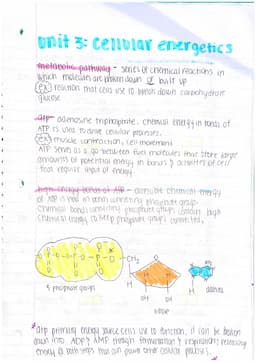 unit 3: cellular energetics
metabolic pathway - series of chemical reactions in
which molecules are broken down or built up
ex: reaction that cells use to break down carbohydrate
glucose
atp - adenosine triphosphate. chemical energy in bonds of
ATP is used to drive cellular processes.
ex: muscle contraction, cell movement
ATP serves as a go-between fuel molecules that store large
amounts of potential energy in bonds & activities of cell
that require input of energy.
high-energy bonds of ATP - chemical energy
of ATP is held in bonds connecting phosphate groups.
chemical bonds connecting phosphate groups contain high
chemical energy to keep phosphate groups connected.
CH2
H
H
OH
OH
3 phosphate groups
adenine
* atp primary energy source cells use to function, it can be broken
down into ADP & AMP through fermentation & respiration; releasing
energy @ both steps that can power other cellular process